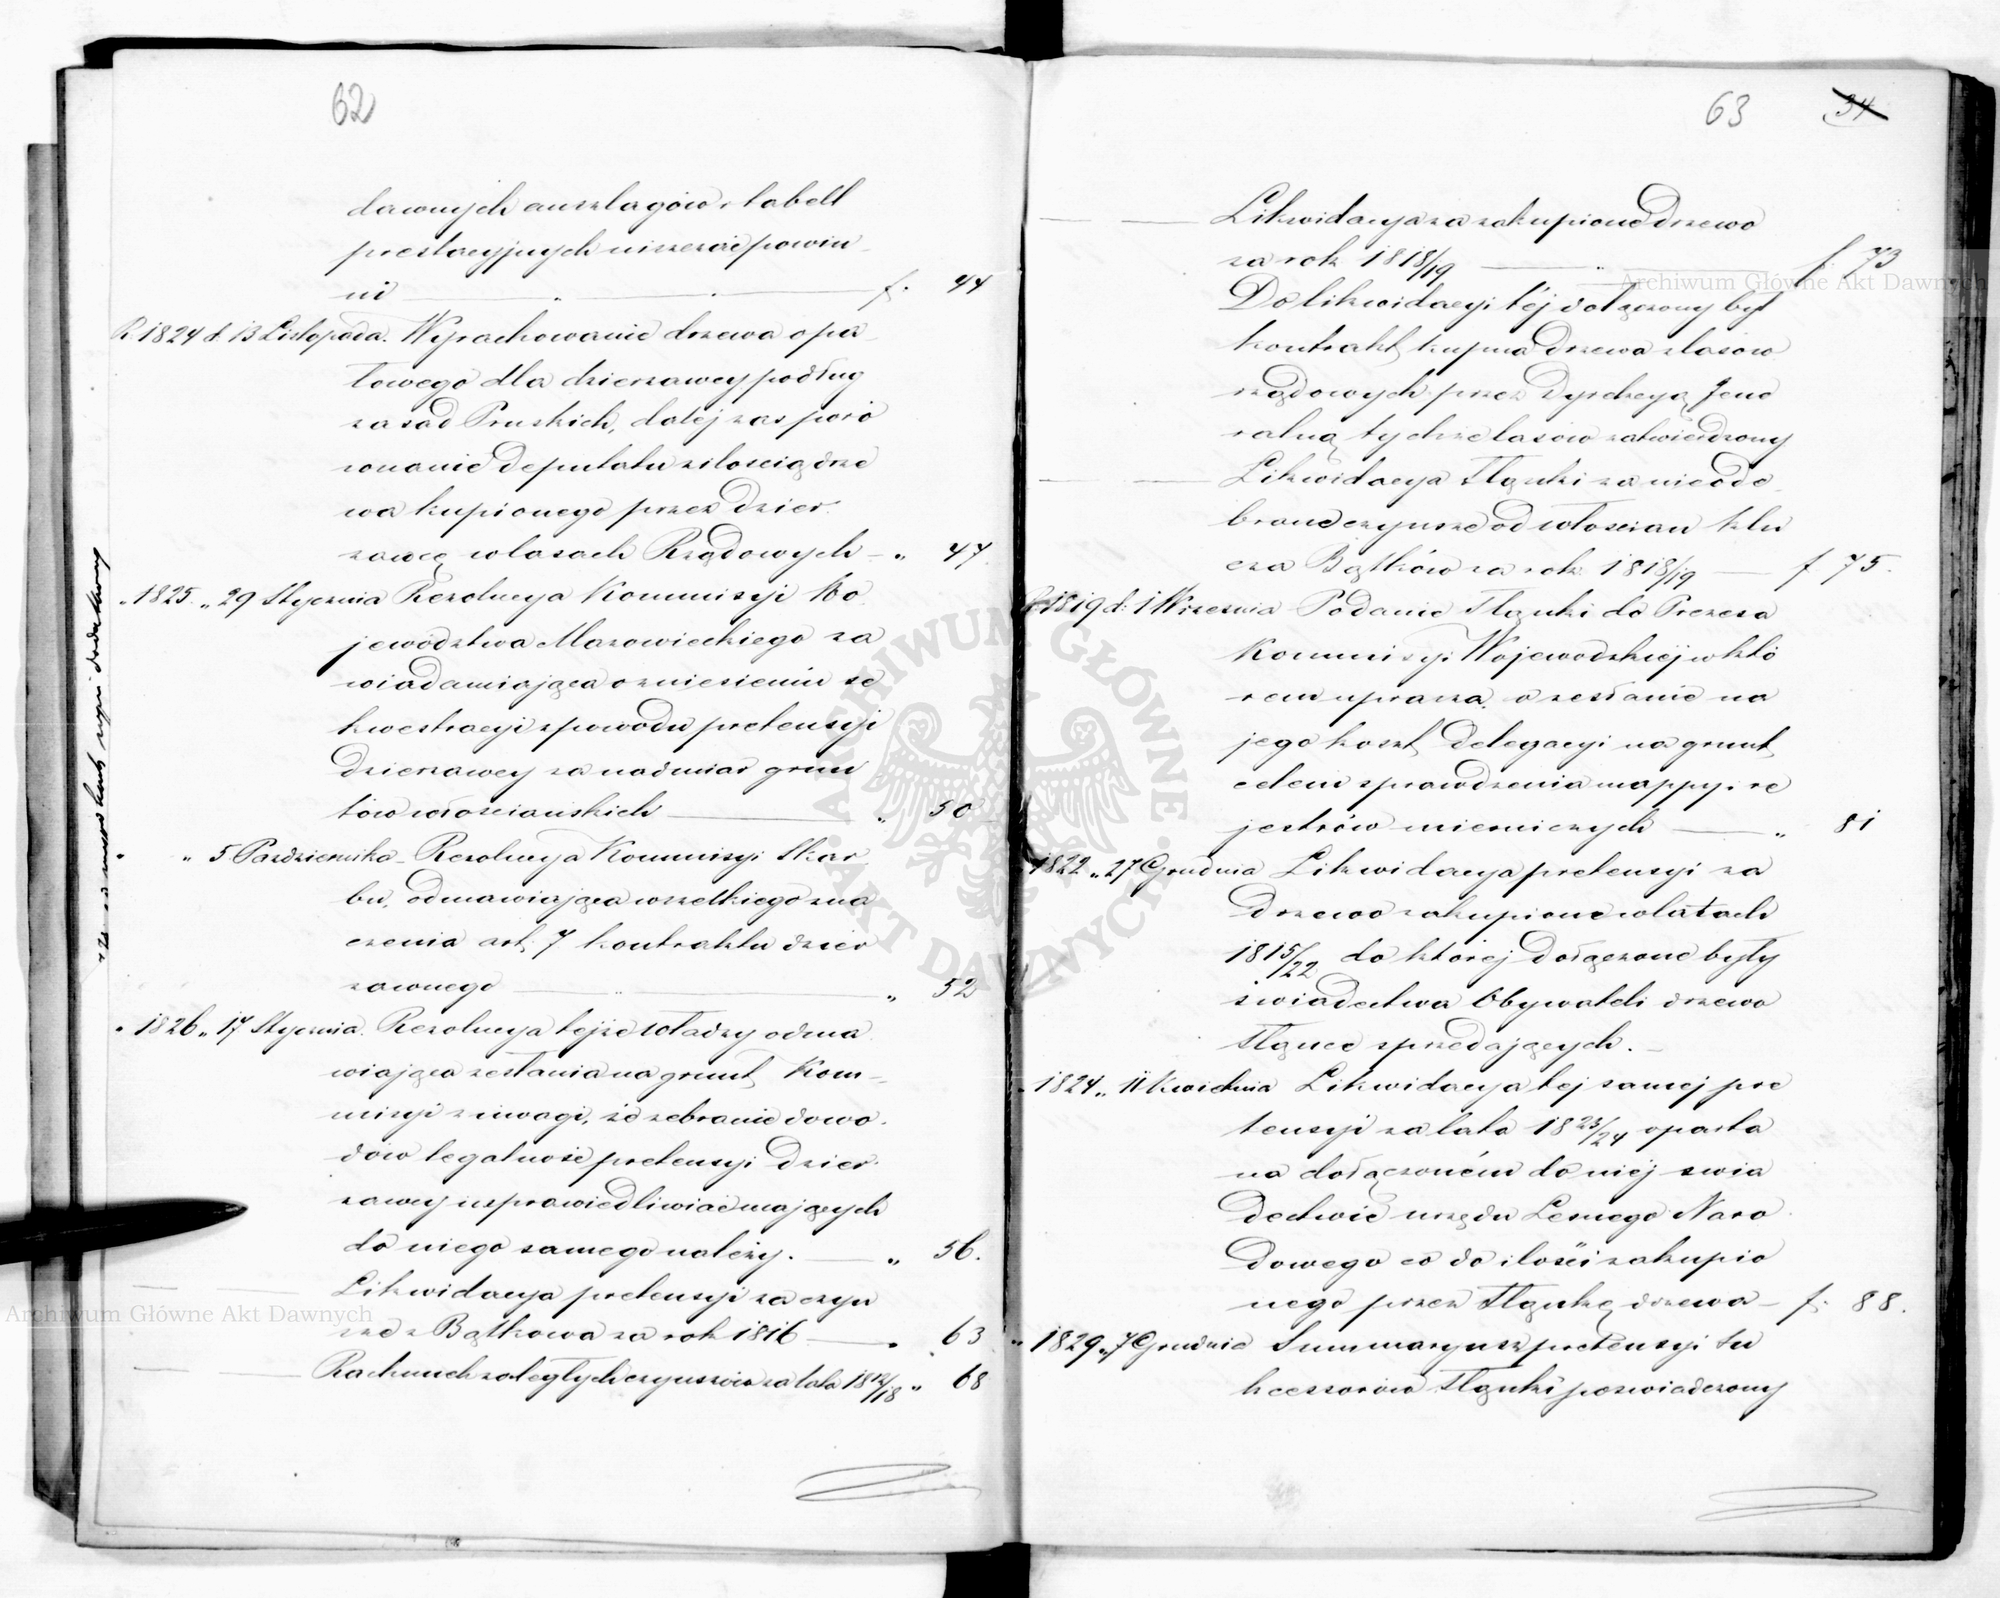 62
dawnych anszlagów i tabell
prestacyjnych uiszczać powin-
ni f. 44
R. 1824 d. 13 Listopada. Wyrachowanie drzewa opa-
łowego dla dzierzawcy podług
zasad Pruskich, dalej zas poró
wnanie deputatu z ilością drze
wa kupionego przez dzier-
zawcę w lasach Rządowych - " 47.
" 1825. " 29 Stycznia Rezolucya Kommissyi Wo
jewództwa Mazowieckiego za
wiadamiająca o zniesieniu se
kwestracyi z powodu pretensyi
Dzierzawcy za nadmiar grun
tów włościańskich " 50
" " 5 Pazdziernika - Rezolucya Kommissyi Skar
bu, odmawiająca wszelkiego zna
czenia art. 7 kontraktu dzier
zawnego " 52
" 1826 " 17 Stycznia. Rezolucya tejże władzy odma
wiająca zesłania na grunt Kom-
missyi z uwagi, że zebranie dowo-
dów legalność pretensyi Dzier-
zawcy usprawiedliwiać mających
do niego samego należy. " 56.
Likwidacya pretensyi za czyn
sze z Bątkowa za rok 1816 " 63
Rachunek zaległych czynszów za lata 18 12/18 " 68
63 34
Likwidacya za zakupione drzewo
za rok 18 18/19 " f. 73
Do likwidacyi téj dołączony był
kontrakt kupna drzewa z lasów
rządowych przez Dyrekcyą Jene
ralną tychże lasów zatwierdzony
Likwidacya Flązuki za nieode-
brane czynsze od włoscian klu
cza Bątków za rok 18 18/19 f 75.
R. 1819 d. 1 Wrzesnia Podanie do Prezesa
Kommissyi Wojewodzkiéj w któ
rem uprasza, o zesłanie na
jego koszt delegacyi na grunt
celem sprawdzenia mappy i re
jestrów mierniczych " 81
1822 " 27 Grudnia Likwidacya pretensyi za
Drzewo zakupione w latach
18 15/22 do którój dołączone były
świadectwa Obywateli drzewo
sprzedających. -
" 1824 " 11 Kwietnia Likwidacya tej samej pre
tensyi za lata 18 23/24 oparta
na dołączoném do niéj swia
dectwie urzędu Lesnego Naro
dowego co do ilości zakupio
nego przez drzewa - f. 88.
" 1829 " 7 Grudnia Summaryusz pretensyi su
kcessorów poswiadczony
Archiwum Główne Akt Dawnych
Archiwum Główne Akt Dawnych
ARCHIWUM GŁÓWNE AKT DAWNYCH